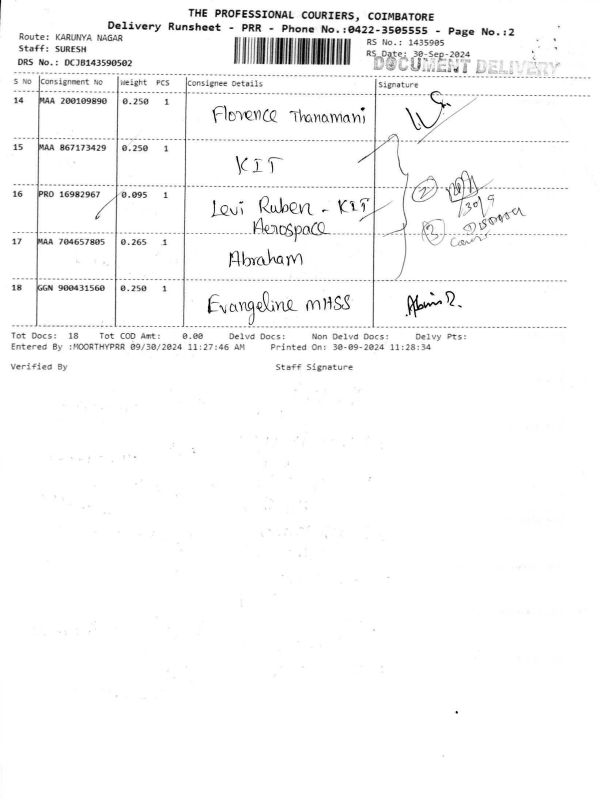 THE PROFESSIONAL COURIERS, COIMBATORE
Delivery Runsheet - PRR - Phone No.:0422-3505555 - Page No.:2
Route: KARUNYA NAGAR
RS No.: 1435905
Staff: SURESH
RS Date: 30-Sep-2024
DRS No.: DCJB143590502
DOCUMENT DELIVERY
S No Consignment No Weight PCS Consignee Details Signature
14 MAA 200109890 0.250 1 Florence Thanamani
15 MAA 867173429 0.250 1 KIT
16 PRO 16982967 0.095 1 Levi Ruben - KIT
Aerospace
2
30/9
3
17 MAA 704657805 0.265 1 Abraham
18 GGN 900431560 0.250 1 Evangeline MHSS
Tot Docs: 18 Tot COD Amt: 0.00 Delvd Docs: Non Delvd Docs: Delvy Pts:
Entered By :MOORTHYPRR 09/30/2024 11:27:46 AM Printed On: 30-09-2024 11:28:34
Verified By Staff Signature